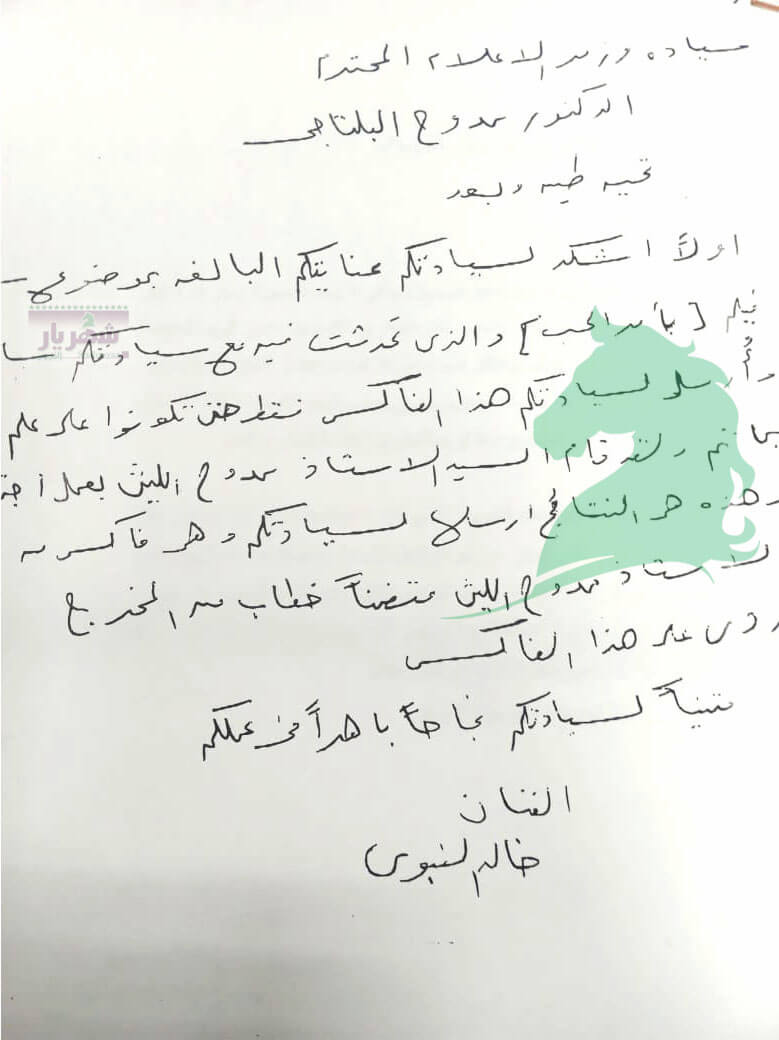 سياده وزير الاعلام المحترم
الدكتور ممدوح البلتاجى
تحيه طيبه وبعد
اولاً اشكر لسيادتكم عنايتكم البالغه بموضوعى
فيلم [بأمر الحب] والذى تحدثت فيه مع سيادتكم
وأرسل لسيادتكم هذا الفاكس فقط حتى تكونوا على علم
بما تم ولقد قام السيد الاستاذ ممدوح الليثى بعمل
وهذه هى النتائج ارسلها لسيادتكم وهى فاكس من
الاستاذ ممدوح الليثى متضمناً خطاب من المخرج
ردى على هذا الفاكس
متمنياً لسيادتكم نجاحاً باهراً فى عملكم
الفنان
خالد النبوى
شهريار